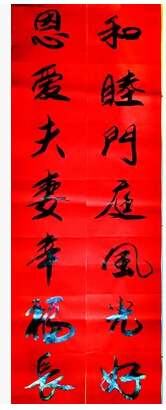 和睦門庭風光好
恩爱夫妻幸福長